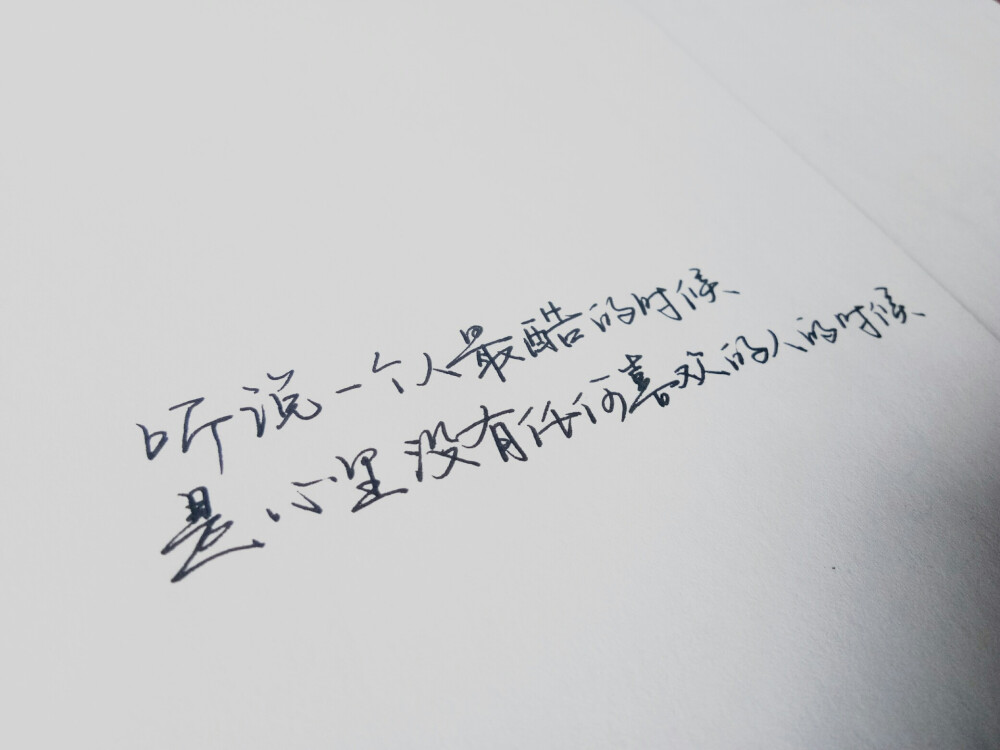 听说一个人最酷的时候
是心里没有任何喜欢的人的时候